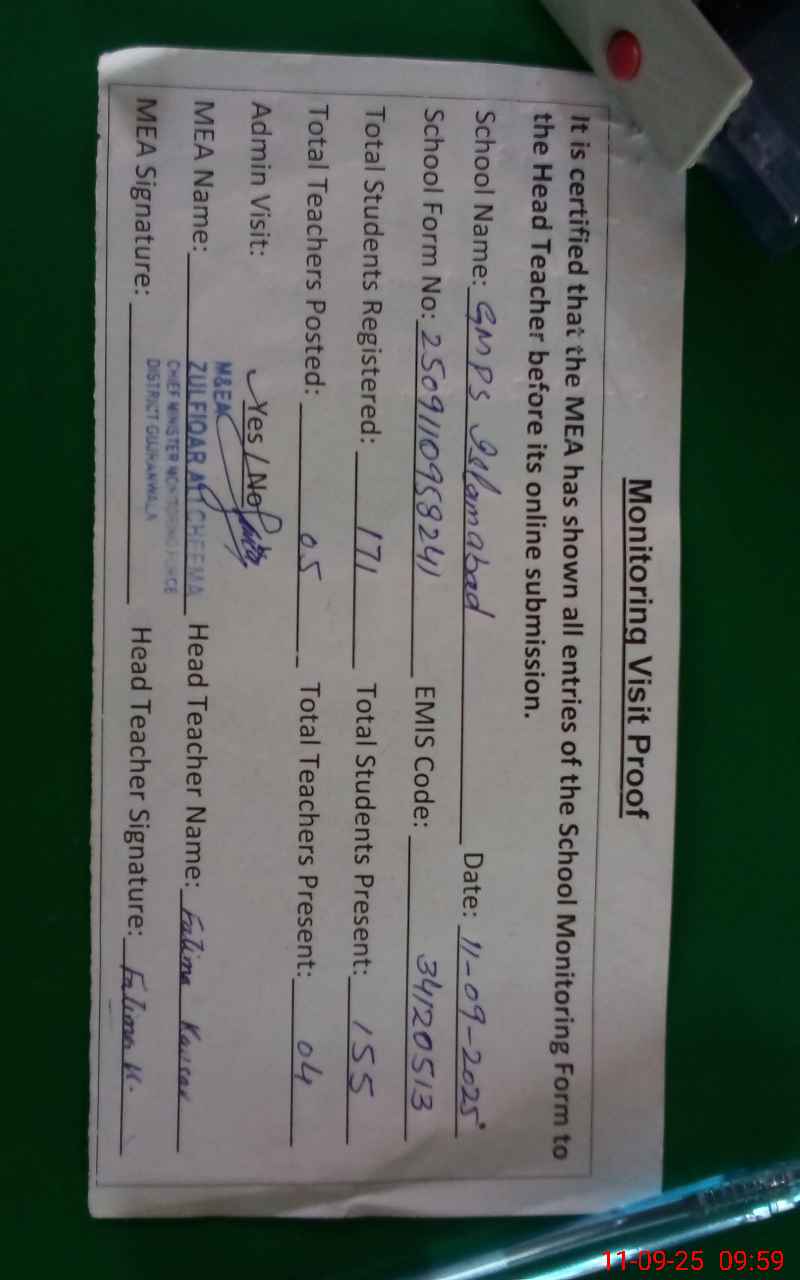 Monitoring Visit Proof
It is certified that the MEA has shown all entries of the School Monitoring Form to
the Head Teacher before its online submission.
School Name: GMPS Islamabad Date: 11-09-2025
School Form No: 2509110958241 EMIS Code: 34120513
Total Students Registered: 171 Total Students Present: 155
Total Teachers Posted: 05 Total Teachers Present: 04
Admin Visit: Yes / No
MEA Name: Head Teacher Name: Fatima Kausar
M&EA
ZULFIQAR ALI CHEEMA
CHIEF MINISTER MONITORING FORCE
DISTRICT GUJRANWALA
MEA Signature: Head Teacher Signature: Fatima K.
11-09-25 09:59